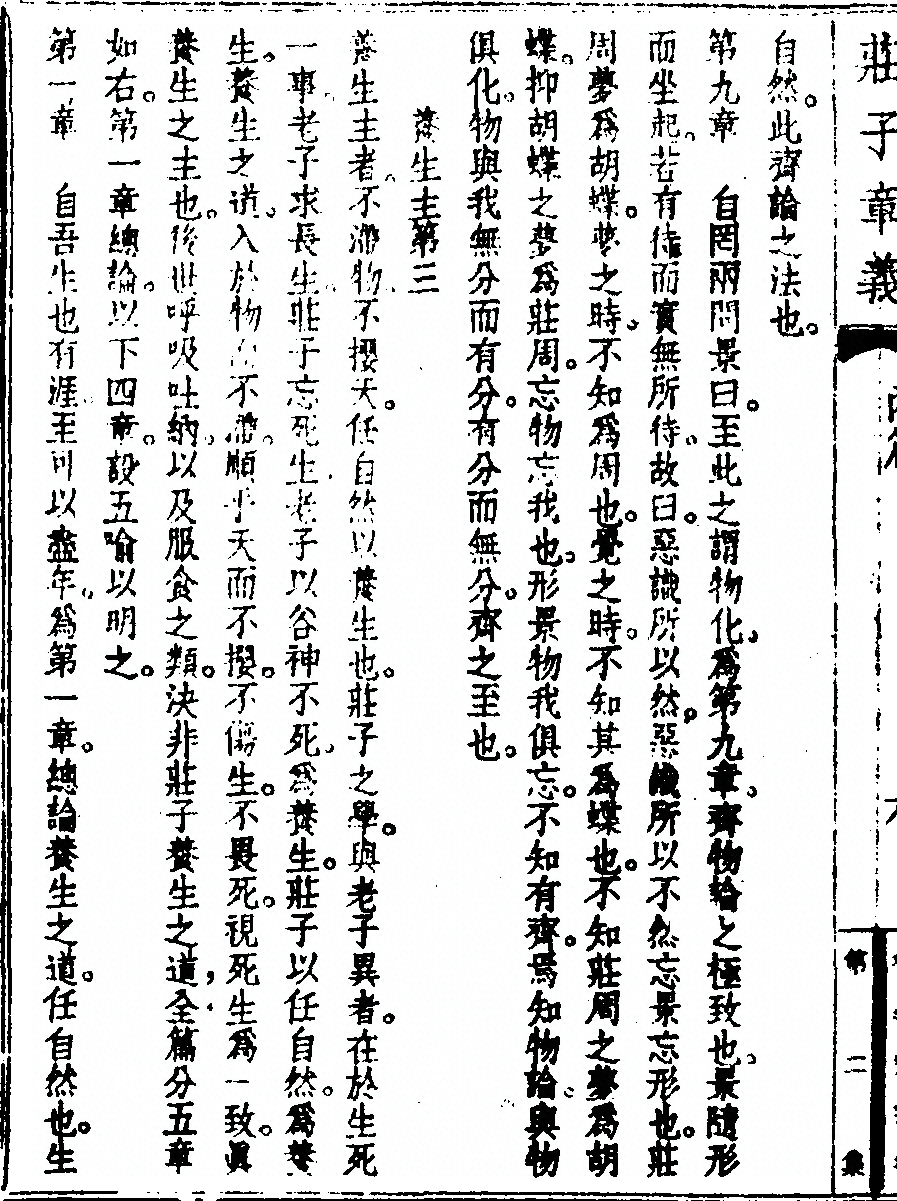 莊子章義
第二集
自然。此齊論之法也。
第九章　自罔兩問景曰。至此之謂物化。爲第九章。齊物論之極致也。景隨形
而坐起。若有待而實無所待。故曰。惡識所以然。惡識所以不然。忘景忘形也。莊
周夢爲胡蝶。夢之時。不知爲周也。覺之時。不知其爲蝶也。不知莊周之夢爲胡
蝶。抑胡蝶之夢爲莊周。忘物忘我也。形景物我俱忘。不知有齊。焉知物論。與物
俱化。物與我無分而有分。有分而無分。齊之至也。
養生主第三
養生主者。不滯物。不攖天。任自然以養生也。莊子之學。與老子異者。在於生死
一事。老子求長生。莊子忘死生。老子以谷神不死。爲養生。莊子以任自然。爲養
生。養生之道。入於物而不滯。順乎天而不攖。不傷生。不畏死。視死生爲一致。眞
養生之主也。後世呼吸吐納。以及服食之類。決非莊子養生之道。全篇分五章
如右。第一章總論。以下四章。設五喻以明之。
第一章　自吾生也有涯。至可以盡年。爲第一章。總論養生之道。任自然也。生